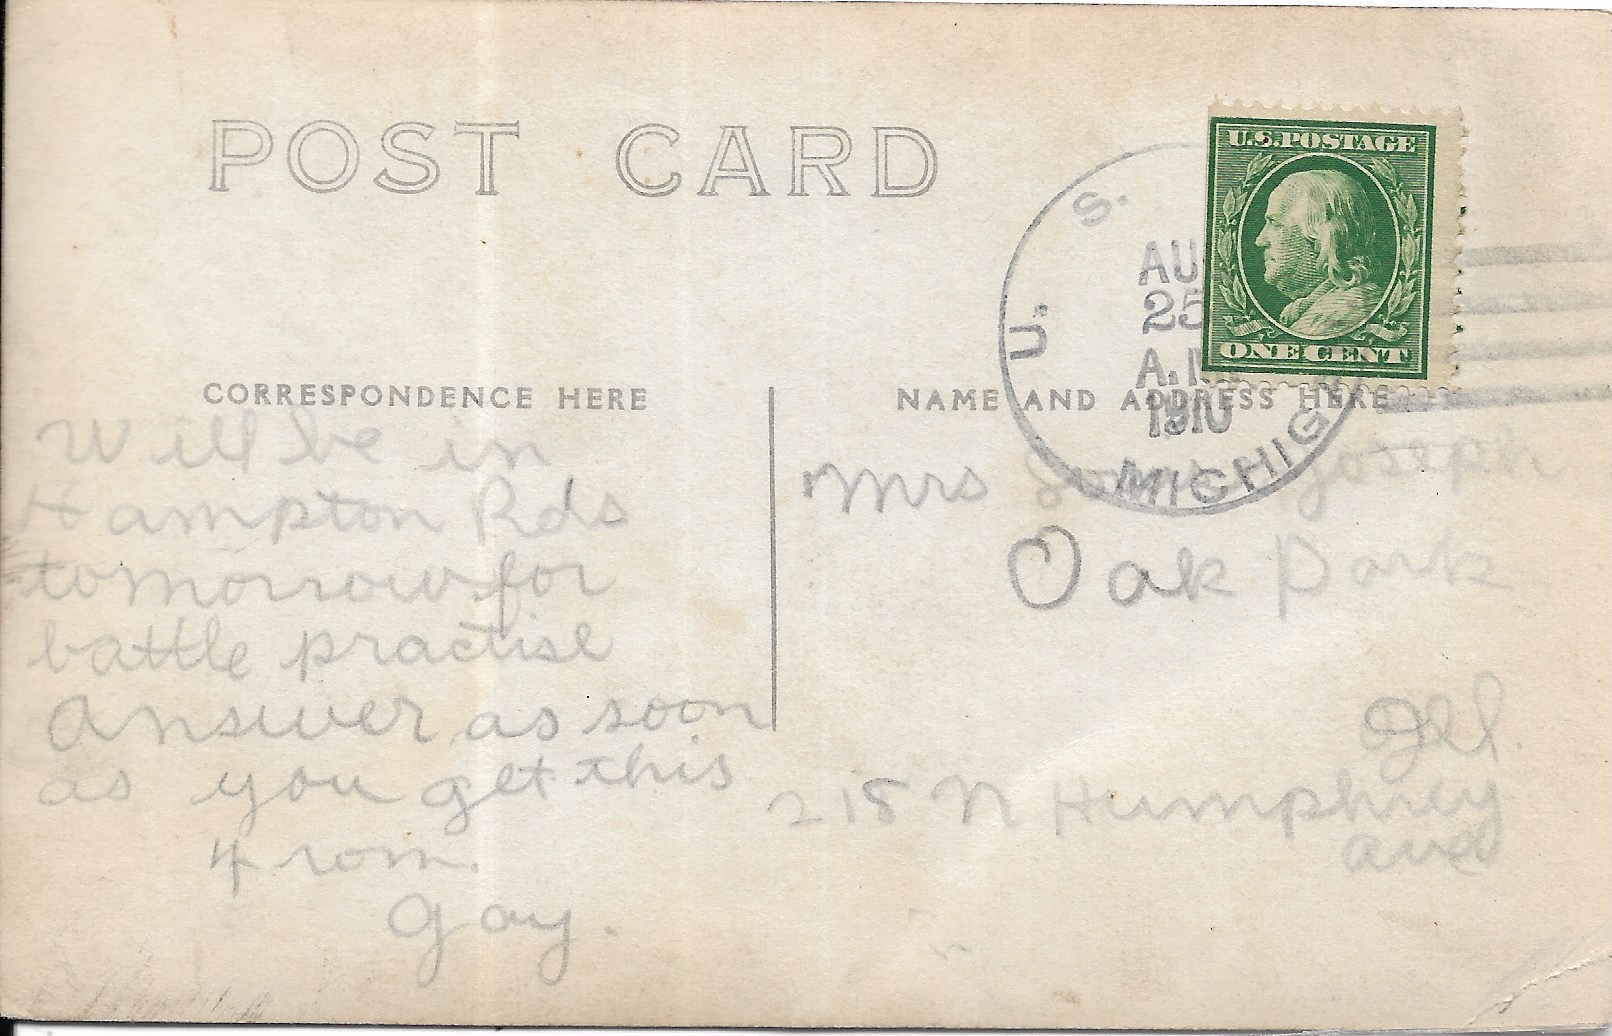 POST CARD
U.S.POSTAGE
ONE CENT
U. S.
AU
25
A.M
1910
MICHIG
CORRESPONDENCE HERE
Will be in
Hampton Rds
tomorrow for
battle practise
Answer as soon
as you get this
From.
Gay.
NAME AND ADDRESS HERE
Mrs Joseph
Oak Park
Ill.
218 N Humphrey
ave